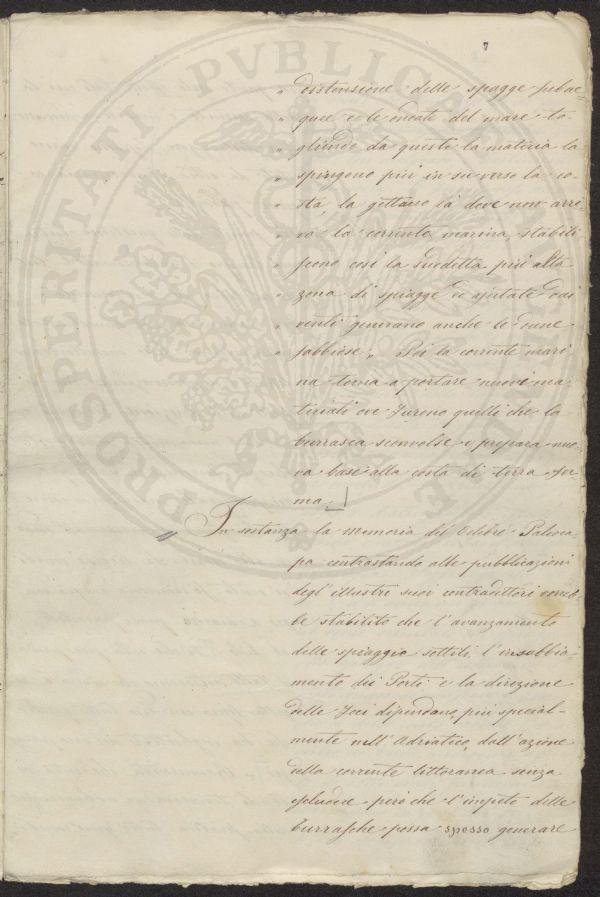 7
„ distensione delle spiagge subac-
„ quee e le ondate del mare to-
„ gliendo da queste la materia la
„ spingono più in su verso la co-
„ sta, la gettano là dove non arri-
„ va la corrente marina, stabili
„ scono così la suddetta più alta
„ zona di spiagge e ajutate dai
„ venti generano anche le dune
„ sabbiose „ Poi la corrente mari
na torna a portare nuovi ma-
teriali ove furono quelli che la
burrasca sconvolse e prepara nuo-
va base alla costa di terra fer
ma.
In sostanza la memoria del celebre Paleoca-
pa contrastando alle pubblicazioni
degl' illustri suoi contraditori avreb-
be stabilito che l'avanzamento
delle spiaggie sottili l'insabbia-
mento dei Porti e la direzione
delle foci dipendano, più special-
mente nell' Adriatico, dall' azione
della corrente littoranea senza
escludere però che l'impeto delle
burrasche possa spesso generare
PROSPERITATI PUBLICAE